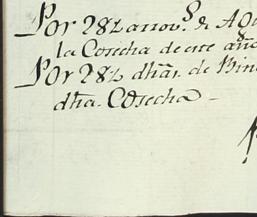 Por 282 arrov.s de A
la Cosecha de este año
Por 282 dhãs. de Bin
dha. Cosecha -